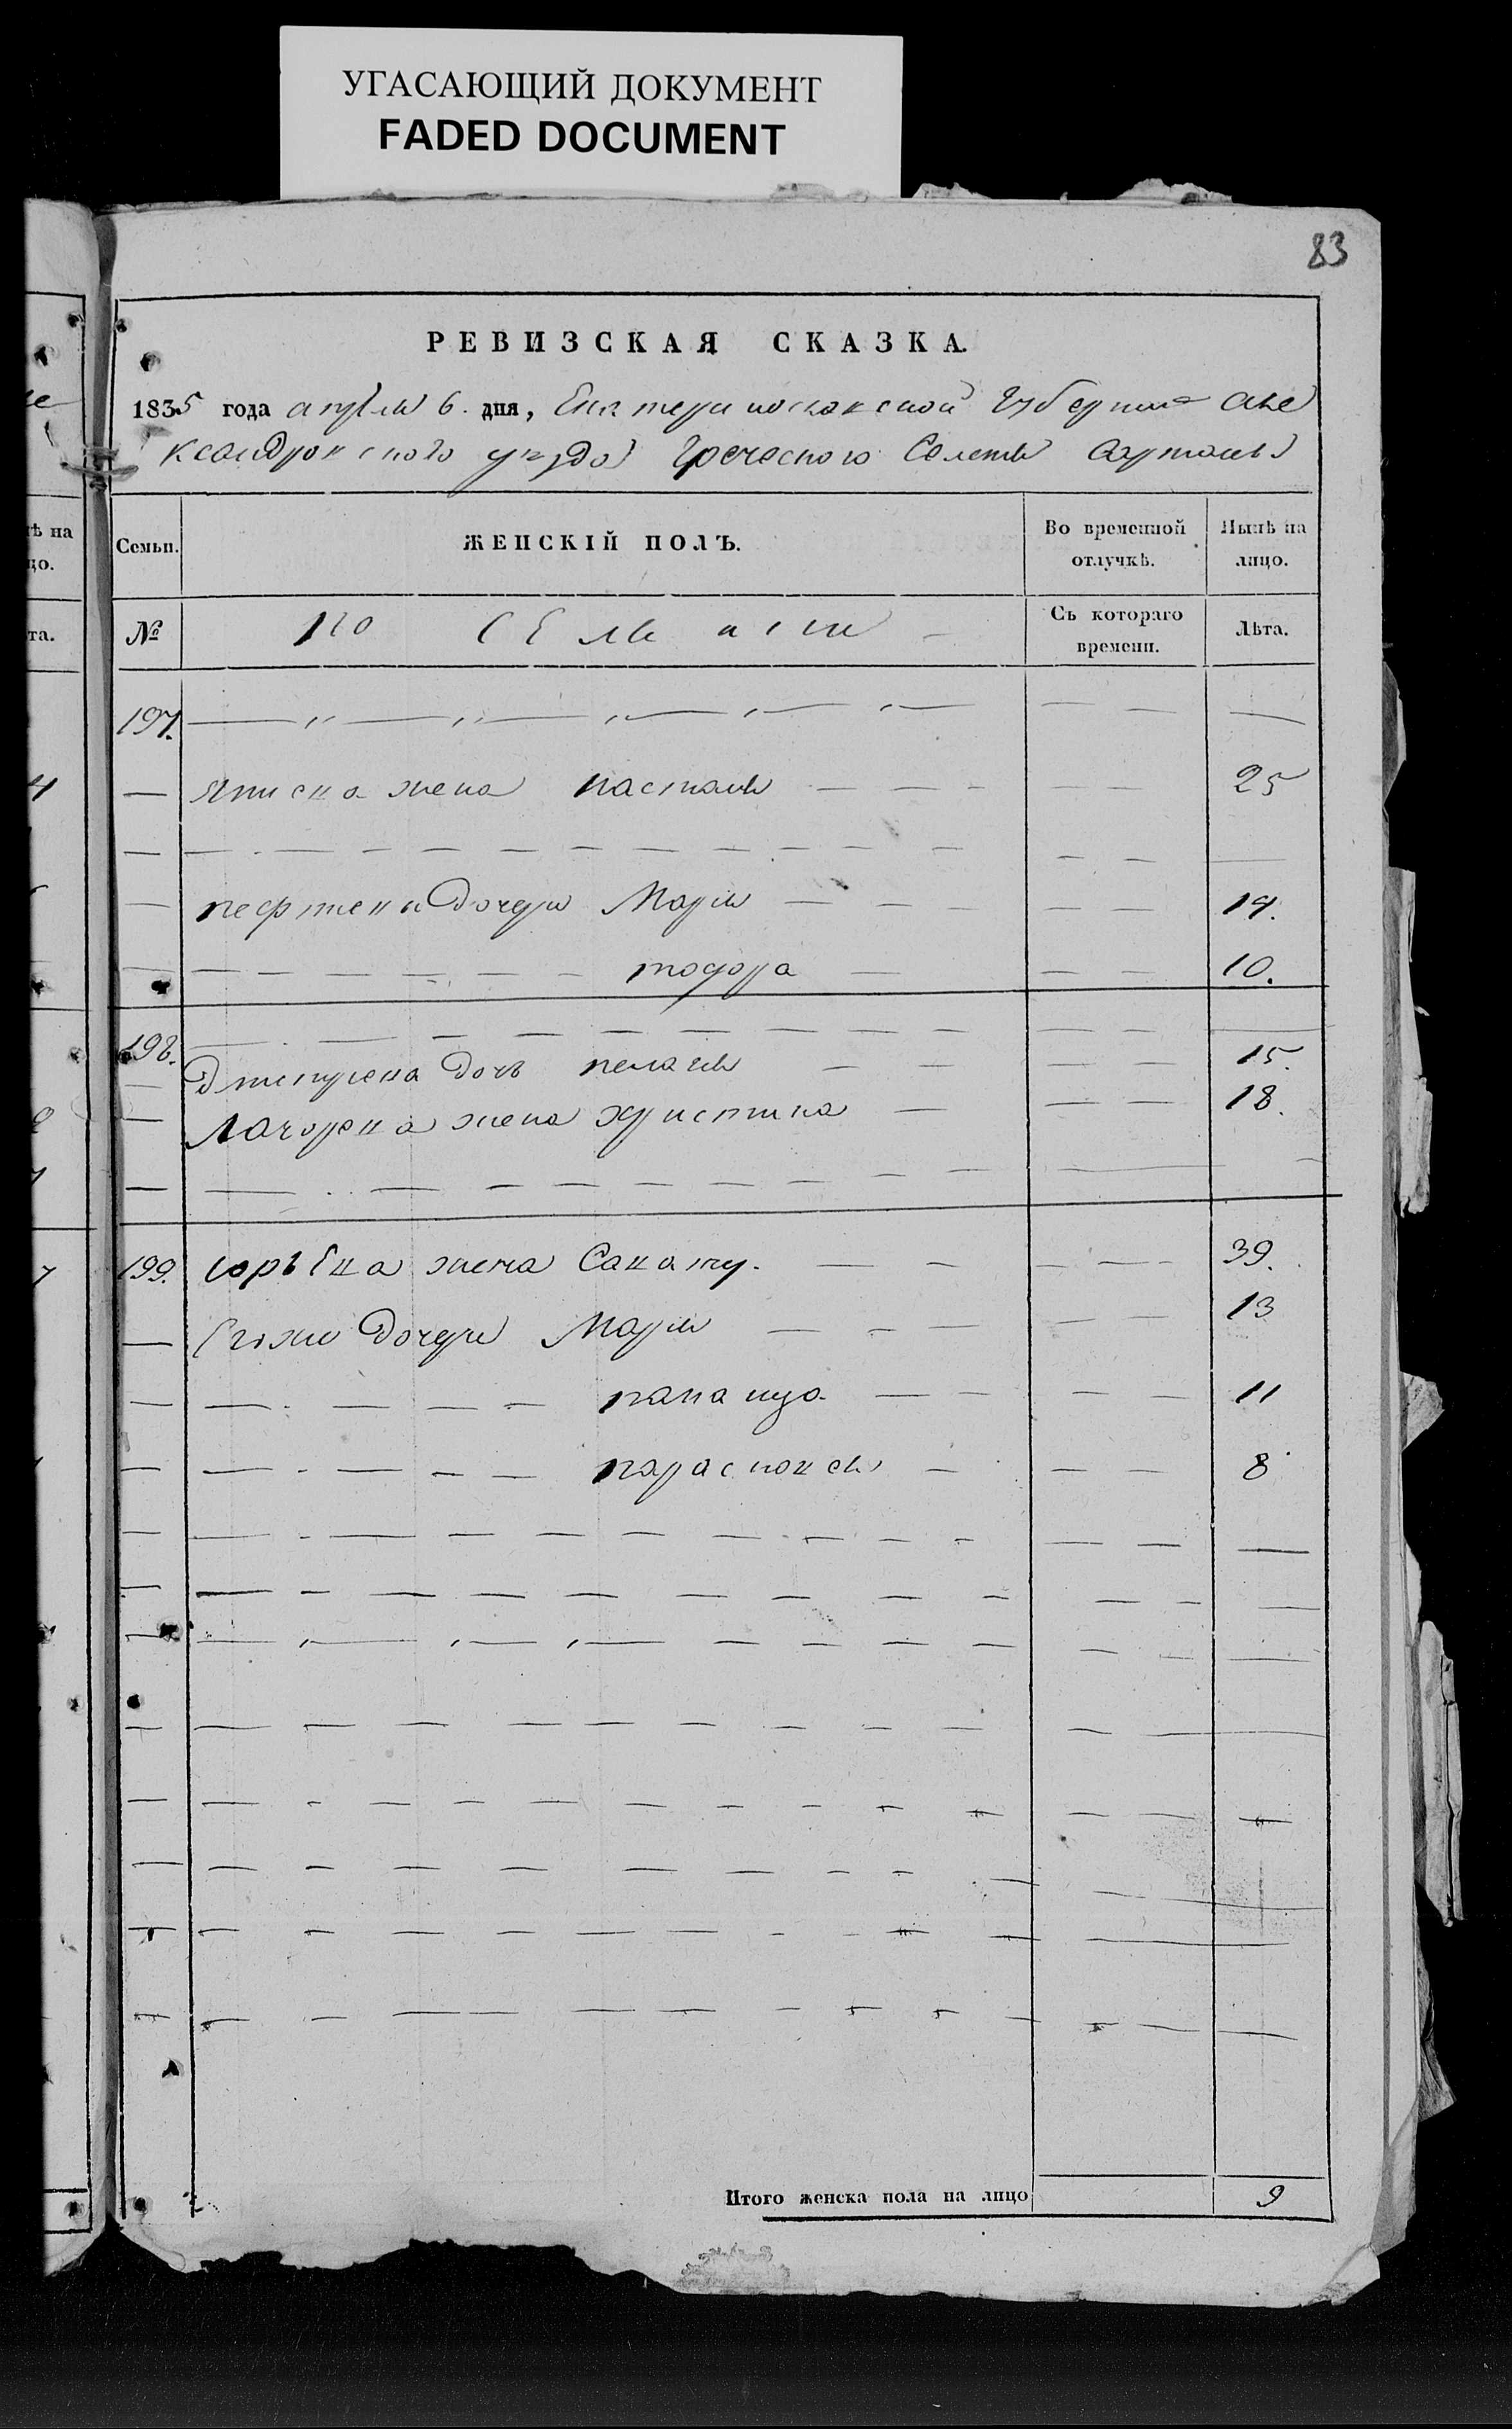 УГАСАЮЩИЙ ДОКУМЕНТ
FADED DOCUMENT
83
РЕВИЗСКАЯ СКАЗКА.
1835 года апреля 6. дня, Екатеринославской Губернии Але
ксандровского уезда Греческого Селения Сартаны
Семьи.
ЖЕНСКІЙ ПОЛЪ.
Во временной отлучкѣ.
Нынѣ на лицо.
№
Съ котораго времени.
Лѣта.
197.
жена настасия 25
дочери Мария 14.
тодора 10.
198.
дочь пелагия 15.
жена христина 18.
199. юрьева жена 39.
Егоже дочери Мария 13
11
парасковея 8
Итого женска пола на лицо 9
ѣ на
цо.
та.